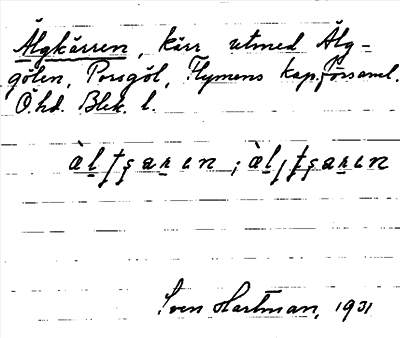 Älgkärren, kärr utmed Älg-
gölen, Porsgöl, Flymens kap.församl.
Ö.hd. Blek. l.
Sven Hartman, 1931